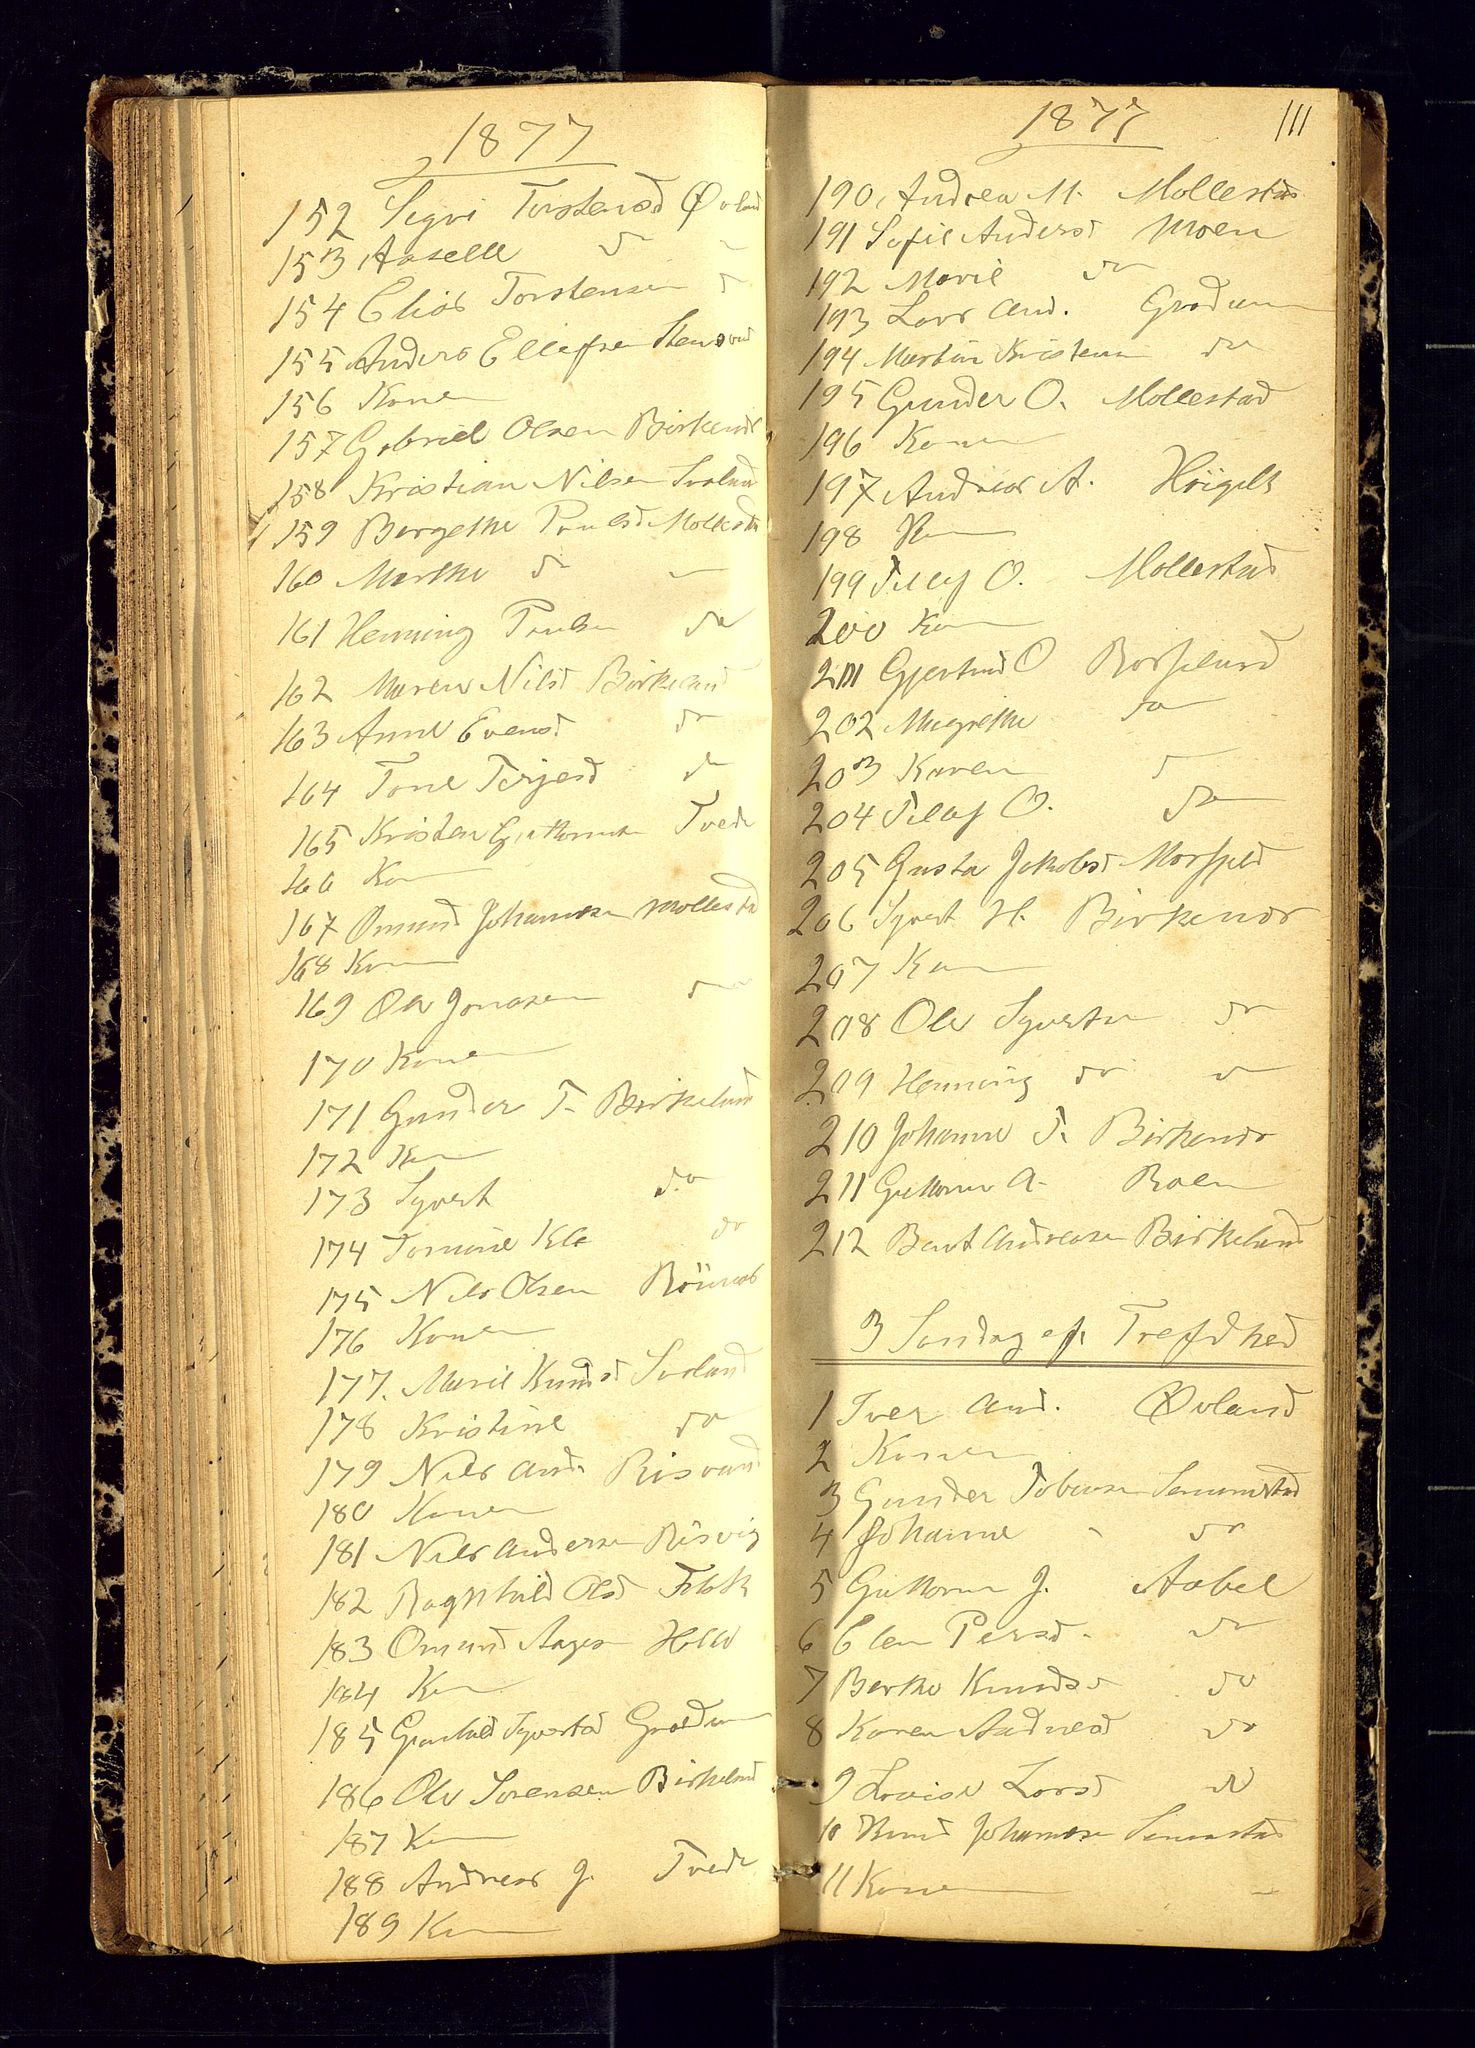 1877
152 Segri Torstensd Øvland
153 Aaselle do -
154 Elias Torstensen do
155 Anders Ellefsen
156 Konen
157 Gabriel Olsen Birkenes
158 Kristian Nilsen Svaland
159 Bergethe Paulsd Mollestad
160 Marthe do -
161 Henning Paulsen do
162 Maren Nilsd Birkeland
163 Anne Evensd do
164 Tone Terjesd do
165 Kristen Guttormsen Tvede
166 Ko
167 Omund Johannesen Mollestad
168 Kon
169 Ole Jonasen do
170 Konen
171 Gunder T. Birkeland
172 Kon
173 Syvert do
174 do
175 Nils Olsen
176 Konen
177. Marie Knudsd Svaland
178 Kristine do
179 Nils And. Risvand
180 Konen
181 Nils Andersen Risvig
182 Raghild Olsd
183 Omund Aagesen
184 Kon
185 Gunhild Syvertsd Grødum
186 Ole Sorensen Birkeland
187 Kon
188 Andreas J. Tvede
189 Kon
1877
111
190 Andrea M. Mollestad
191 Sofie Andersd Moen
192 Marie do
193 Lars And. Grødum
194 Martin Kristensen do
195 Gunder O. Mollestad
196 Konen
197 Andreas A.
198 Kon
199 Tellef O. Mollestad
200 Kon
201 Gjertrud O
202 Magrethe do
203 Karen do
204 Tellef O. do
205 Gusta Jakobsd
206 Syvert H. Birkenes
207 Kon
208 Ole Syvertsen do
209 Henning do do
210 Johanne T. Birkenes
211 Guttorm A.
212 Bent Andreasen Birkeland
3 Søndag ef. Trefdhed
1 Iver And. Øvland
2 Konen
3 Gunder Tobiasen Senumstad
4 Johanne - do
5 Guttorm J. Aabel
6 Elen Persd. do
7 Berthe Knudsd do
8 Karen Aadnesd do
9 Lovise Larsd do
10 Knud Johannesen Senumstad
11 Konen -